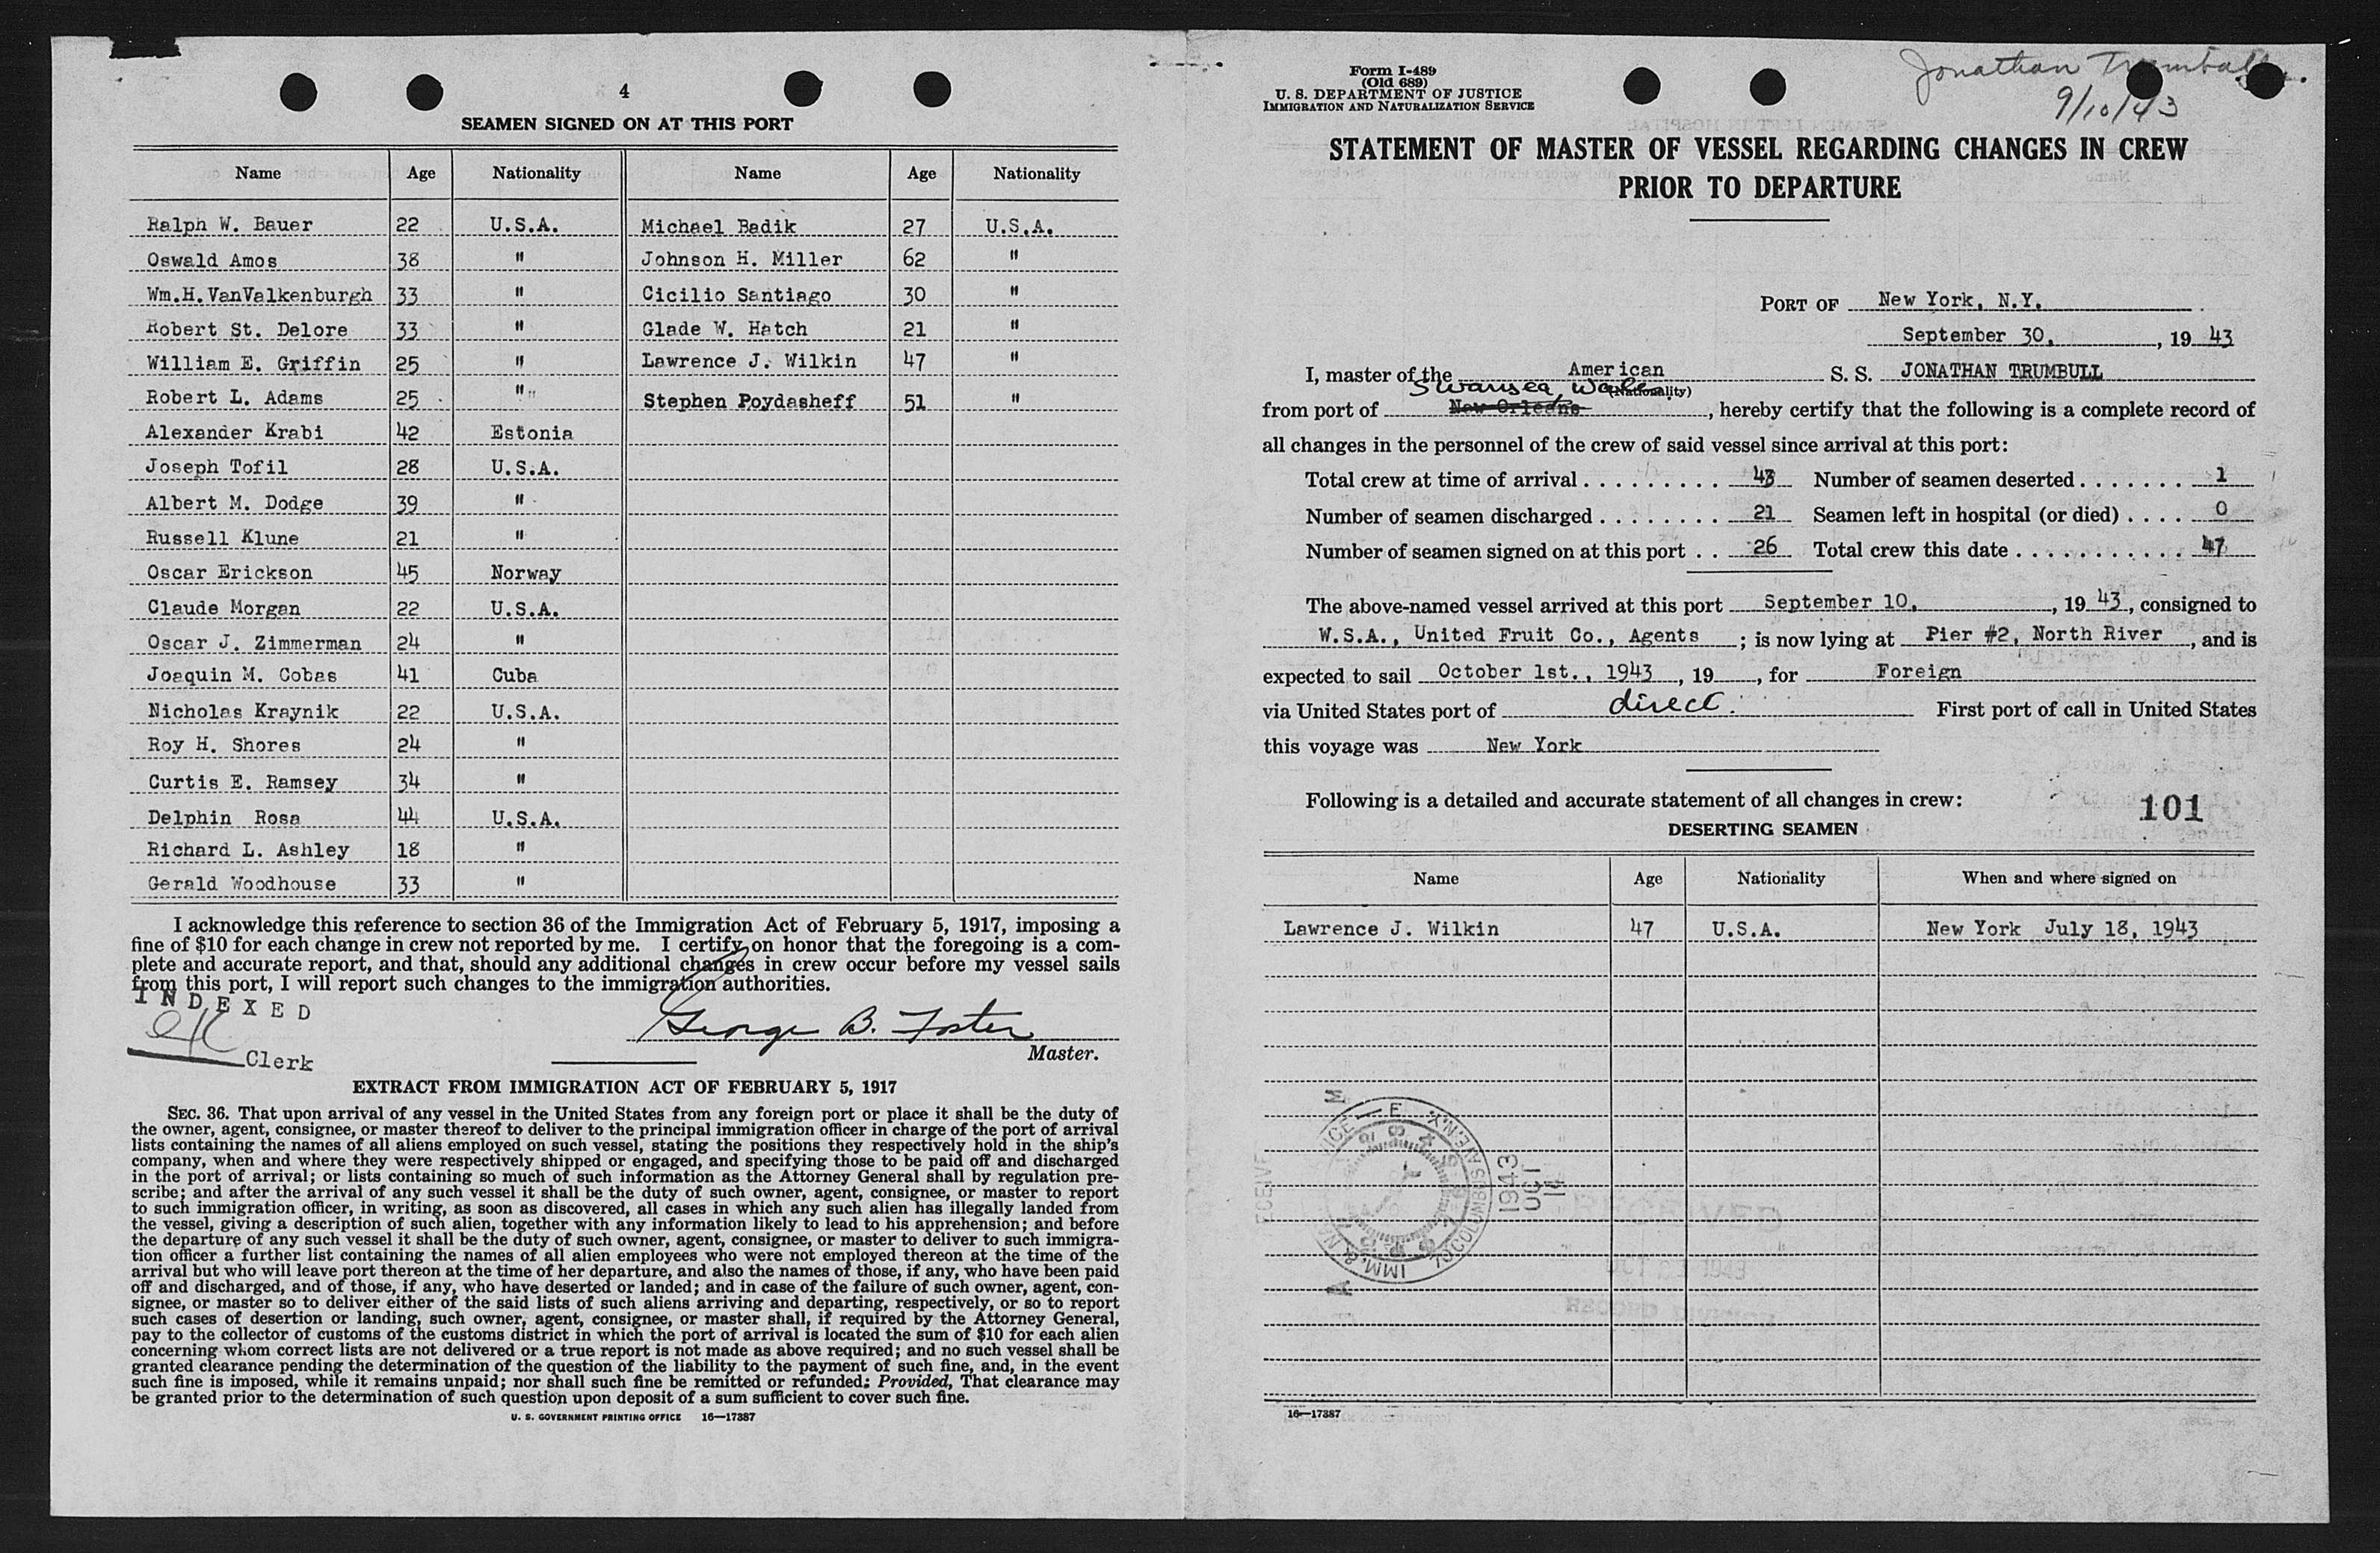 4
SEAMEN SIGNED ON AT THIS PORT
Name Age Nationality Name Age Nationality
Ralph W. Bauer 22 U.S.A. Michael Badik 27 U.S.A.
Oswald Amos 38 " Johnson H. Miller 62 "
Wm.H.VanValkenburgh 33 " Cicilio Santiago 30 "
Robert St. Delore 33 " Glade W. Hatch 21 "
William E. Griffin 25 " Lawrence J. Wilkin 47 "
Robert L. Adams 25 " Stephen Poydasheff 51 "
Alexander Krabi 42 Estonia
Joseph Tofil 28 U.S.A.
Albert M. Dodge 39 "
Russell Klune 21 "
Oscar Erickson 45 Norway
Claude Morgan 22 U.S.A.
Oscar J. Zimmerman 24 "
Joaquin M. Cobas 41 Cuba
Nicholas Kraynik 22 U.S.A.
Roy H. Shores 24 "
Curtis E. Ramsey 34 "
Delphin Rosa 44 U.S.A.
Richard L. Ashley 18 "
Gerald Woodhouse 33 "
I acknowledge this reference to section 36 of the Immigration Act of February 5, 1917, imposing a
fine of $10 for each change in crew not reported by me. I certify on honor that the foregoing is a com-
plete and accurate report, and that, should any additional changes in crew occur before my vessel sails
from this port, I will report such changes to the immigration authorities.
INDEXED
George B. Foster
Clerk
Master.
EXTRACT FROM IMMIGRATION ACT OF FEBRUARY 5, 1917
SEC. 36. That upon arrival of any vessel in the United States from any foreign port or place it shall be the duty of
the owner, agent, consignee, or master thereof to deliver to the principal immigration officer in charge of the port of arrival
lists containing the names of all aliens employed on such vessel, stating the positions they respectively hold in the ship's
company, when and where they were respectively shipped or engaged, and specifying those to be paid off and discharged
in the port of arrival; or lists containing so much of such information as the Attorney General shall by regulation pre-
scribe; and after the arrival of any such vessel it shall be the duty of such owner, agent, consignee, or master to report
to such immigration officer, in writing, as soon as discovered, all cases in which any such alien has illegally landed from
the vessel, giving a description of such alien, together with any information likely to lead to his apprehension; and before
the departure of any such vessel it shall be the duty of such owner, agent, consignee, or master to deliver to such immigra-
tion officer a further list containing the names of all alien employees who were not employed thereon at the time of the
arrival but who will leave port thereon at the time of her departure, and also the names of those, if any, who have been paid
off and discharged, and of those, if any, who have deserted or landed; and in case of the failure of such owner, agent, con-
signee, or master so to deliver either of the said lists of such aliens arriving and departing, respectively, or so to report
such cases of desertion or landing, such owner, agent, consignee, or master shall, if required by the Attorney General,
pay to the collector of customs of the customs district in which the port of arrival is located the sum of $10 for each alien
concerning whom correct lists are not delivered or a true report is not made as above required; and no such vessel shall be
granted clearance pending the determination of the question of the liability to the payment of such fine, and, in the event
such fine is imposed, while it remains unpaid; nor shall such fine be remitted or refunded: Provided, That clearance may
be granted prior to the determination of such question upon deposit of a sum sufficient to cover such fine.
U. S. GOVERNMENT PRINTING OFFICE 16—17387
Form I-489
(Old 689)
U. S. DEPARTMENT OF JUSTICE
IMMIGRATION AND NATURALIZATION SERVICE
Jonathan Trumbull
9/10/43
STATEMENT OF MASTER OF VESSEL REGARDING CHANGES IN CREW
PRIOR TO DEPARTURE
PORT OF New York, N.Y.
September 30, , 19 43
I, master of the American S. S. JONATHAN TRUMBULL
Swansea, Wales (Nationality)
from port of New Orleans , hereby certify that the following is a complete record of
all changes in the personnel of the crew of said vessel since arrival at this port:
Total crew at time of arrival . . . . . . . . . 43 Number of seamen deserted . . . . . . . 1
Number of seamen discharged . . . . . . . . 21 Seamen left in hospital (or died) . . . . 0
Number of seamen signed on at this port . . 26 Total crew this date . . . . . . . . . . . 47
The above-named vessel arrived at this port September 10, , 19 43, consigned to
W.S.A., United Fruit Co., Agents ; is now lying at Pier #2, North River , and is
expected to sail October 1st., 1943 , 19 , for Foreign
via United States port of direct. First port of call in United States
this voyage was New York
Following is a detailed and accurate statement of all changes in crew:
101
DESERTING SEAMEN
Name Age Nationality When and where signed on
Lawrence J. Wilkin 47 U.S.A. New York July 18, 1943
IMM. & N
70 COLUMBUS AVE. N.Y.
1943
OCT
RECEIVED
16—17387